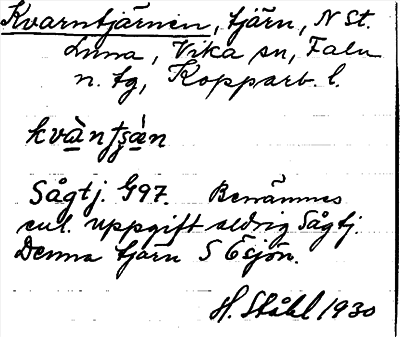 Kvarntjärnen, tjärn, N St.
Luna, Vika sn, Falu
n. tg, Kopparb. l.
kvàṇtʂạ̈n
Sågtj. G97. Benämnes
enl. uppgift aldrig Sågtj.
Denna tjärn S Esjön.
H. Ståhl 1930